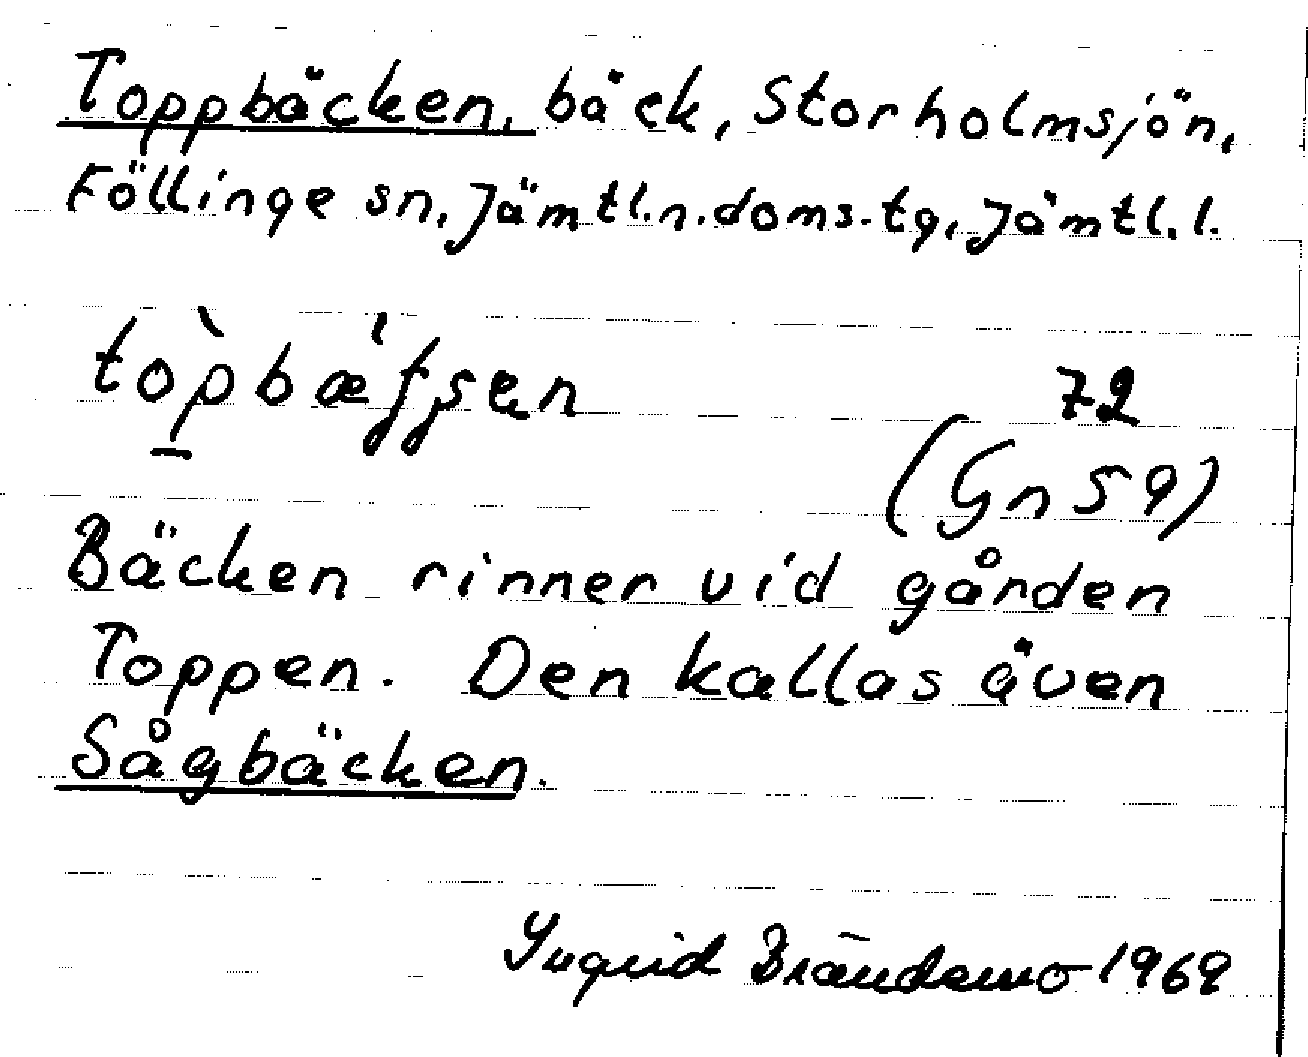 Toppbäcken, bäck, Storholmsjön,
Föllinge sn, Jämtl.n.doms.tg, Jämtl.l.
72
(Gn 59)
Bäcken rinner vid gården
Toppen. Den kallas även
Sågbäcken.
Ingrid Brändemo 1969